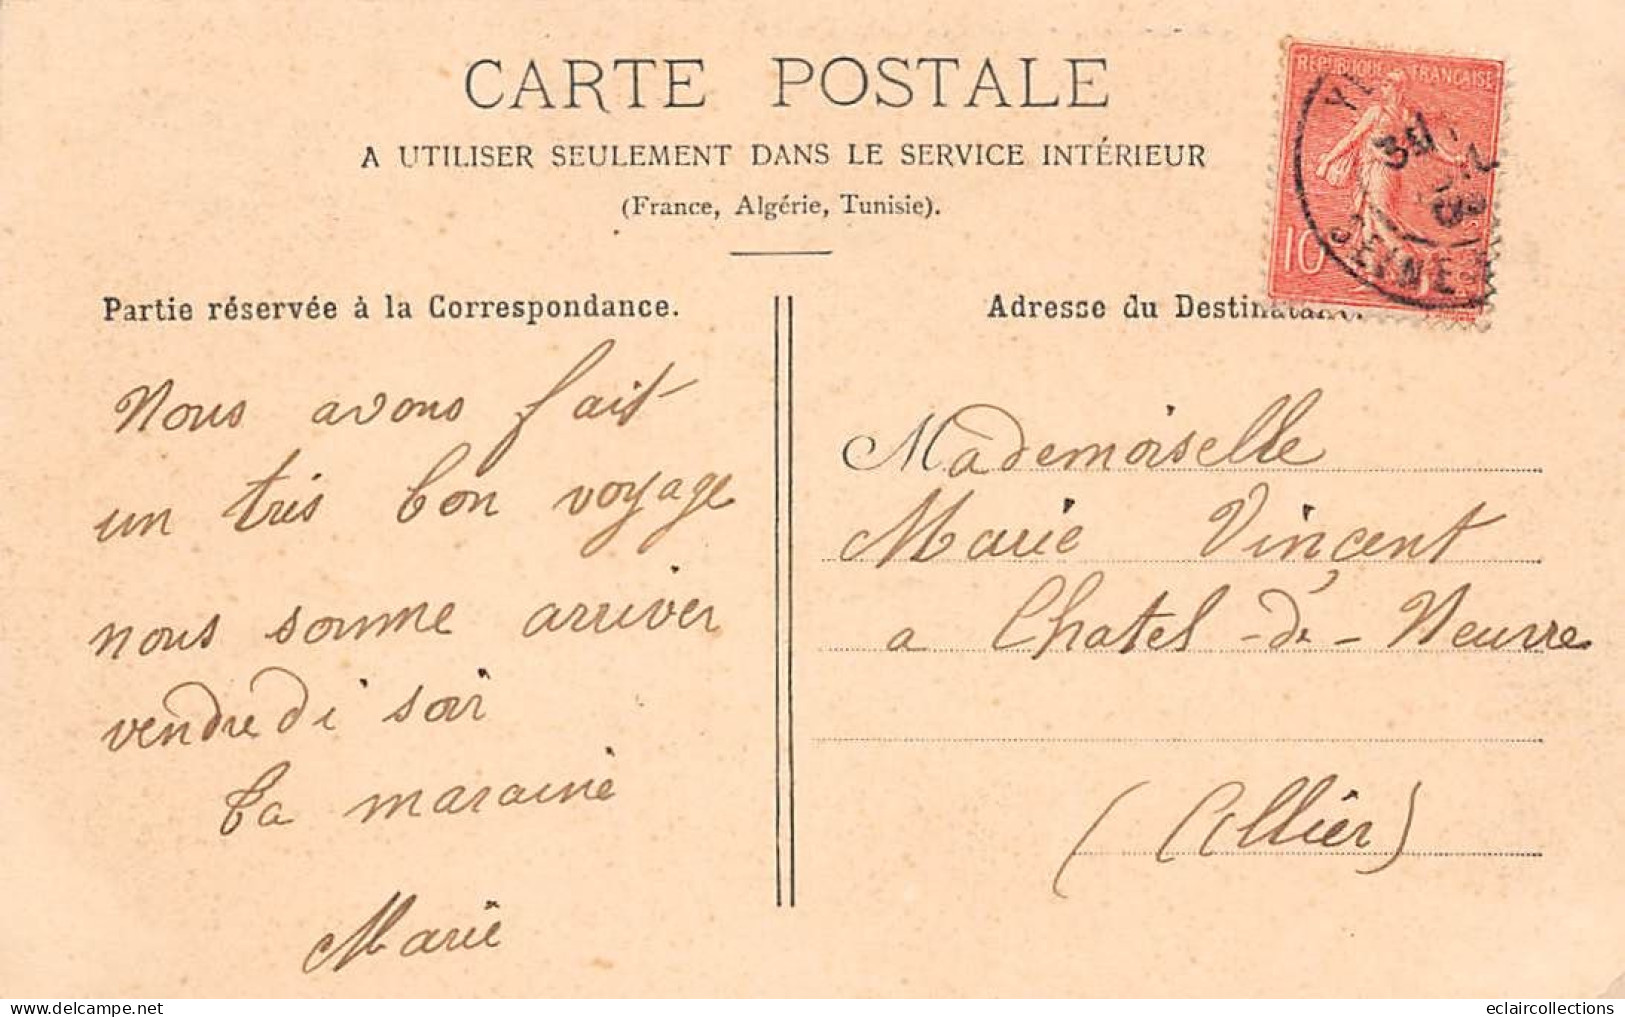 CARTE POSTALE
A UTILISER SEULEMENT DANS LE SERVICE INTÉRIEUR
(France, Algérie, Tunisie).
RÉPUBLIQUE FRANÇAISE
10
SEINE
Partie réservée à la Correspondance.
Nous avons fait
un tris bon voyage
nous somme arriver
vendredi soir
ta maraine
Marie
Adresse du Destinataire.
Mademoiselle
Marie Vincent
a Chatel-de-Neuvre
(Allier)
eclaircollections